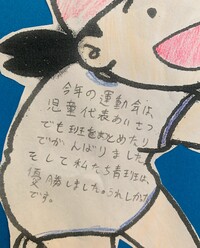 今年の運動会は、
児童代表あいさつ
でも班をまとめたり
でがんばりました。
そして私たち青班は、
優勝しました。うれしかた
です。